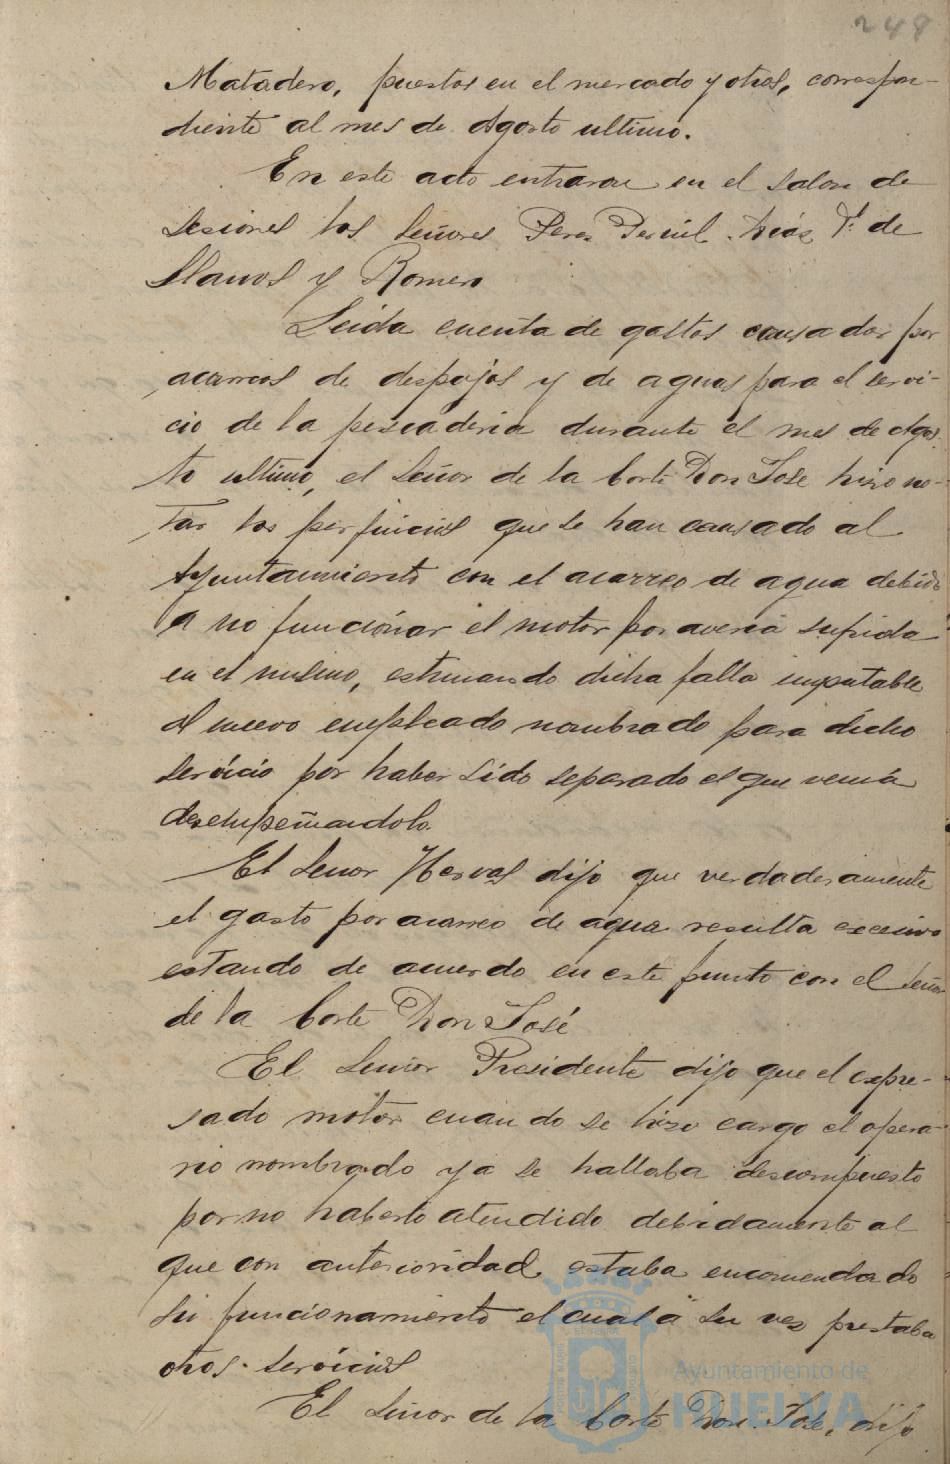 248
Matadero, puestos en el mercado y otros, correspon-
diente al mes de Agosto ultimo.
En este acto entraron en el salon de
sesiones los Señores Perez Pernil. Díaz, Fz. de
Llanos y Romero
Leida cuenta de gastos causados por
acarreos de despojos y de aguas para el servi-
cio de la pescaderia durante el mes de Agos
to ultimo, el Señor de la Corte Don José hizo no-
tar los perjuicios que se han causado al
Ayuntamiento con el acarreo de agua debido
a no funcionar el motor por averia sufrida
en el mismo, estimando dicha falta imputable
al nuevo empleado nombrado para dicho
servicio por haber sido separado el que venia
desempeñandolo.
El Señor Hervas dijo que verdaderamente
el gasto por acarreo de agua resulta excesivo
estando de acuerdo en este punto con el Señor
de la Corte Don José
El Señor Presidente dijo que el expre-
sado motor cuando se hizo cargo el opera-
rio nombrado ya se hallaba descompuesto
por no haberlo atendido debidamente al
que con anterioridad estaba encomendado
su funcionamiento el cual á su vez prestaba
otros servicios
El Señor de la Corte Don José, dijo
Ayuntamiento de
HUELVA